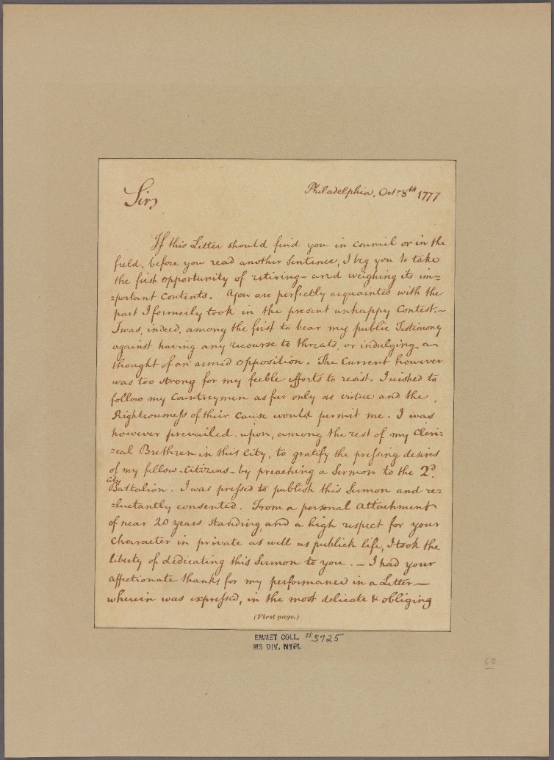 Philadelphia, Octr 8th 1777
Sir,
If this Letter should find you in Council or in the
field, before you read another sentence, I beg you to take
the first opportunity of retiring and weighing its im=
=portant Contents. You are perfectly acquainted with the
part I formerly took in the present unhappy Contest;–
I was, indeed, among the first to bear my public Testimony
against having any recourse to threats, or indulging, a
thought of an armed opposition. The Current however
was too strong for my feeble efforts to resist. I wished to
follow my Countrymen as far only as virtue and the
Righteousness of their Cause would permit me. I was
however prevailed upon, among the rest of my Cleri=
=cal Brethren in this City, to gratify the pressing desires
of my fellow-Citizens by preaching a Sermon to the 2d.
City
Battalion. I was pressed to publish this Sermon and re=
=luctantly consented. From a personal attachment
of near 20 years standing, and a high respect for your
Character in private as well as publick life, I took the
liberty of dedicating this Sermon to you. – I had your
affectionate thanks for my performance in a Letter –
wherein was expressed, in the most delicate & obliging
(First page.)
EMMET COLL. #
MS DIV. NYPL